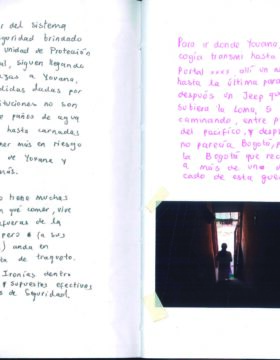 r del sistema
guridad brindado
Unidad de Protección
al, siguen llegando
zas a Yovana,
didas dadas por
tituciones no son
e paños de agua
hasta carnadas
ner más en riesgo
de Yovana y
más.
o tiene muchas
n qué comer, vive
fueras de la
pero a (a sus
) anda en
ta de traqueto.
Ironías dentro
y supuestos efectivos
s de Seguridad.
Para ir donde Yovana,
cogía transmi hasta
Portal xxxx, allí un a
hasta la última para
después un Jeep qu
subiera la loma, s
caminando, entre p
del pacífico, y desp
no parecía Bogotá, p
la Bogotá que rec
a más de una
cado de esta gue